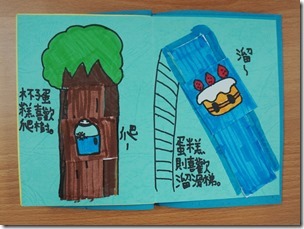 杯子蛋
糕喜歡
爬樹。
爬~
溜~
蛋糕
則喜歡
溜滑梯。